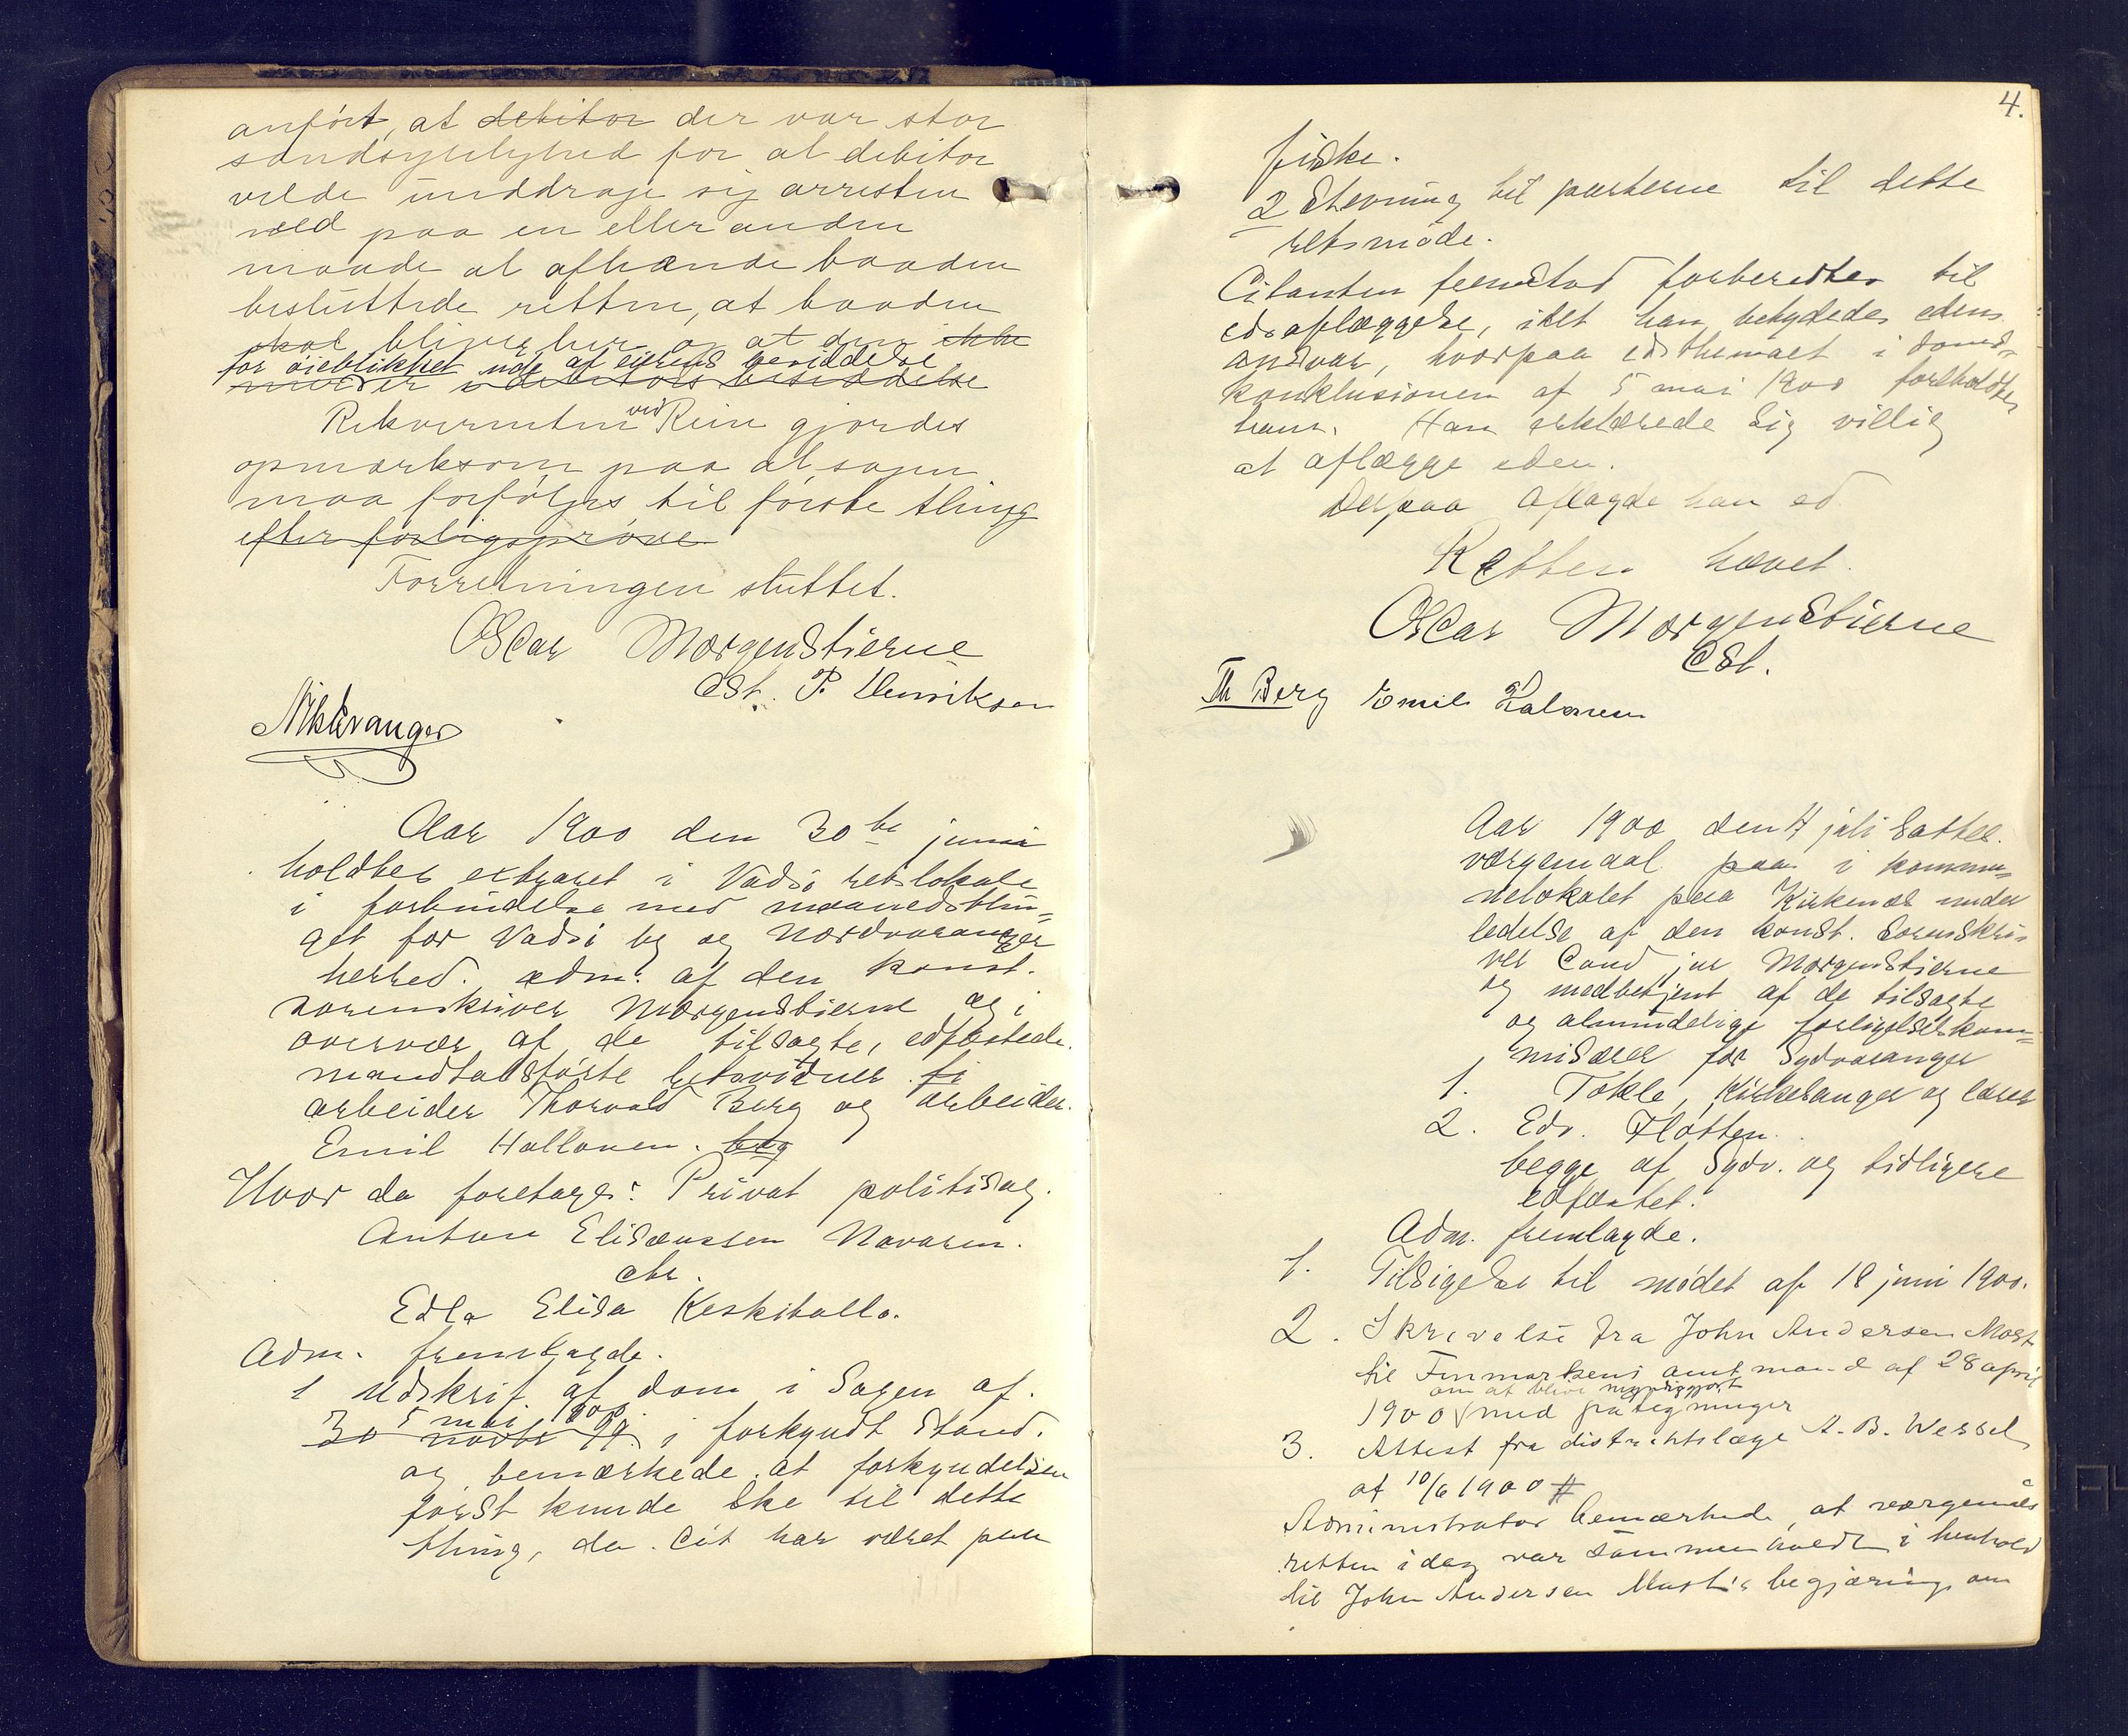 anført, at debitor der var stor
sandsynlighed for at debitor
vilde unddrage sig arresten
ved paa en eller anden
maade at afhænde baaden
besluttede retten, at baaden
skal bliver her og at den ikke
for øieblikket ude af eierens besiddelse
i debitors besiddelse
Rekvirenten ved Rein gjordes
opmærksom paa at sagen
maa forfølges til første thing
efter forligsprøve
Forretningen sluttet.
Oscar Morgenstierne
cst. P. Henriksen
Aar 1900 den 30te juni
holdtes extraret i Vadsø retslokale
i forbindelse med maanedsthin=
get for Vadsø by og Nordvaranger
herred. adm. af den konst.
sorenskriver Morgenstierne og i
overvær af de tilsagte, edfæstede
mandtalsførte retsvidner
arbeider Thorvald Berg og arbeider
Emil Hallonen. beg
Hvor da foretages: Privat politisag.
Anton Elisæussen Navaren.
ctr.
Edla Elisa Keskitallo.
Adm. fremlagde.
1 Udskrift af dom i Sagen af.
5 mai 1900
30 novbr 99. i forkyndt Stand.
og bemærkede at forkyndelsen
først kunde ske til dette
thing, da Cit har været paa
4.
fiske.
2 Stevning til parterne til dette
retsmøde.
Citanten fremstod forberedtes til
edsaflæggelse, idet han betydedes edens
ansvar, hvorpaa edsthemaet i doms=
konklusionen af 5 mai 1900 foreholdtes
ham. Han erklærede sig villig
at aflægge eden.
Derpaa aflagde han ed
Retten hævet.
Oscar Morgenstierne
cst.
Th Berg Emil Halonen
Aar 1900 den 4 juli sattes
værgemaal paa i kommu=
nelokalet paa Kirkenæs under
ledelse af den konst. Sorenskri=
ver Cand jur Morgenstierne
og medbetjent af de tilsagte
og almindelige forligelseskom=
misærer for Sydvaranger
1. Tokle, Kirkesanger og lærer
2. Edv. Fløtten.
begge af Sydv. og tidligere
edfæstet.
Adm. fremlagde.
1. Tilsigelse til mødet af 18 juni 1900.
2. Skrivelse fra John Andersen Mast
til Finmarkens amtmand af 28 april
om at blive myndiggjort
1900 med påtegninger
3. Attest fra distriktslæge A. B. Wessel
af 10/6 1900 #
Administrator bemærkede, at værgemåls
retten idag var sammenkaldt i henhold
til John Andersen Mast's begjæring om